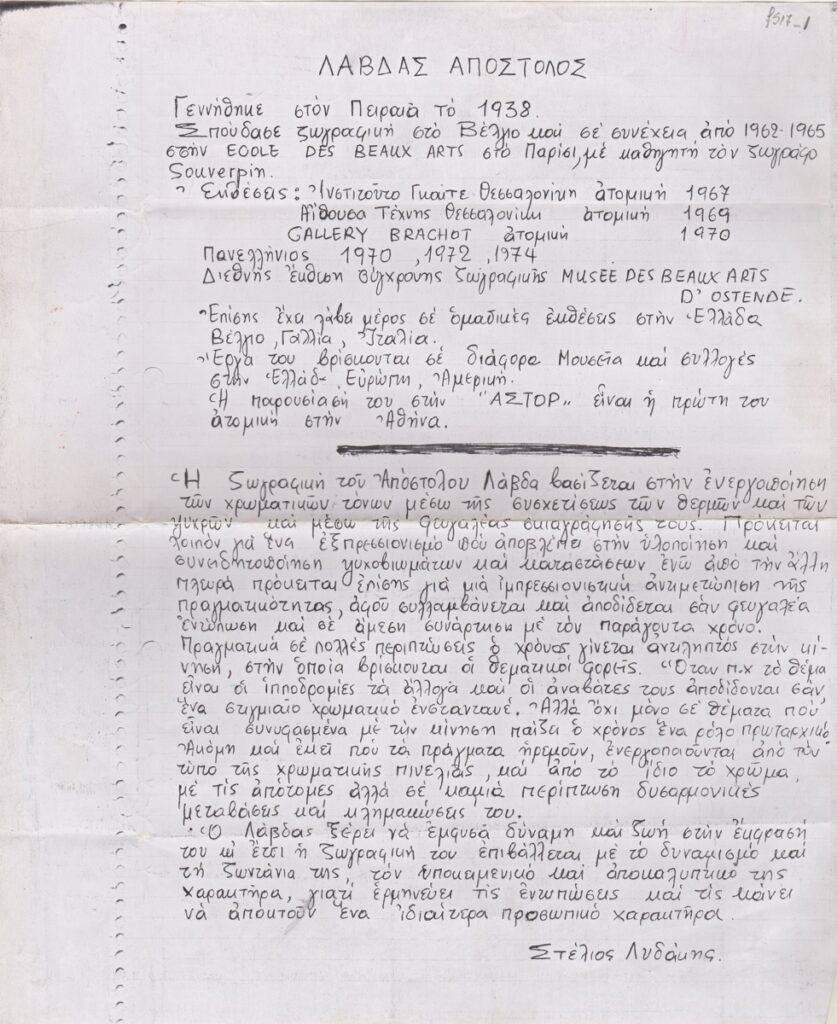 f517-1
ΛΑΒΔΑΣ ΑΠΟΣΤΟΛΟΣ
Γεννήθηκε στόν Πειραιᾶ τό 1938.
Σπούδασε ζωγραφική στό Βέλγιο καί σέ συνέχεια ἀπό 1962-1965
στήν ECOLE DES BEAUX ARTS στό Παρίσι, μέ καθηγητή τόν ζωγράφο
Souverpin.
Ἐκθέσεις: Ἰνστιτοῦτο Γκαῖτε Θεσσαλονίκη ἀτομική 1967
Αἴθουσα Τέχνης Θεσσαλονίκη ἀτομική 1969
GALLERY BRACHOT ἀτομική 1970
Πανελλήνιος 1970 ,1972 ,1974
Διεθνής ἔκθεση σύγχρονης ζωγραφικῆς MUSEE DES BEAUX ARTS
D' OSTENDE.
Ἐπίσης ἔχει λάβει μέρος σέ ὁμαδικές ἐκθέσεις στήν Ἑλλάδα
Βέλγιο, Γαλλία, Ἰταλία.
Ἔργα του βρίσκονται σέ διάφορα Μουσεῖα καί συλλογές
στήν Ἑλλάδ, Εὐρώπη, Ἀμερική.
Ἡ παρουσίασή του στήν "ΑΣΤΟΡ" εἶναι ἡ πρώτη του
ἀτομική στήν Ἀθήνα.
Ἡ ζωγραφική τοῦ Ἀπόστολου Λάβδα βασίζεται στήν ἐνεργοποίηση
τῶν χρωματικῶν τόνων μέσω τῆς συσχετίσεως τῶν θερμῶν καί τῶν
ψυχρῶν καί μέσω τῆς φευγαλέας σκιαγράφησής τους. Πρόκειται
λοιπόν γιά ἕνα ἐξπρεσσιονισμό πού ἀποβλέπει στήν ὑλοποίηση καί
συνειδητοποίηση ψυχοβιωμάτων καί καταστάσεων ἐνῶ ἀπό τήν ἄλλη
πλευρά πρόκειται ἐπίσης γιά μιά ἰμπρεσσιονιστική ἀντιμετώπιση τῆς
πραγματικότητας, ἀφοῦ συλλαμβάνεται καί ἀποδίδεται σάν φευγαλέα
ἐντύπωση καί σέ ἄμεση συνάρτηση μέ τόν παράγοντα χρόνο.
Πραγματικά σέ πολλές περιπτώσεις ὁ χρόνος γίνεται ἀντιληπτός στήν κί-
νηση, στήν ὁποία βρίσκονται οἱ θεματικοί φορεῖς. Ὅταν π.χ τό θέμα
εἶναι οἱ ἱπποδρομίες τά ἄλογα καί οἱ ἀναβάτες τους ἀποδίδονται σάν
ἕνα στιγμιαῖο χρωματικό ἐνσταντανέ. Ἀλλά ὄχι μόνο σέ θέματα πού
εἶναι συνυφασμένα μέ τήν κίνηση παίζει ὁ χρόνος ἕνα ρόλο πρωταρχικό
Ἀκόμη καί ἐκεῖ πού τά πράγματα ἠρεμοῦν, ἐνεργοποιοῦνται ἀπό τόν
τύπο τῆς χρωματικῆς πινελιᾶς, καί ἀπό τό ἴδιο τό χρῶμα,
μέ τίς ἀπότομες ἀλλά σέ καμιά περίπτωση δυσαρμονικές
μεταβάσεις καί κλημακώσεις του.
Ὁ Λάβδας ξέρει νά ἐμφυσᾶ δύναμη καί ζωή στήν ἔκφρασή
του κι ἔτσι ἡ ζωγραφική του ἐπιβάλλεται μέ τό δυναμισμό καί
τή ζωντάνια της, τόν ὑποκειμενικό καί ἀποκαλυπτικό της
χαρακτήρα, γιατί ἑρμηνεύει τίς ἐντυπώσεις καί τίς κάνει
νά ἀποκτοῦν ἕνα ἰδιαίτερα προσωπικό χαρακτῆρα.
Στέλιος Λυδάκης.